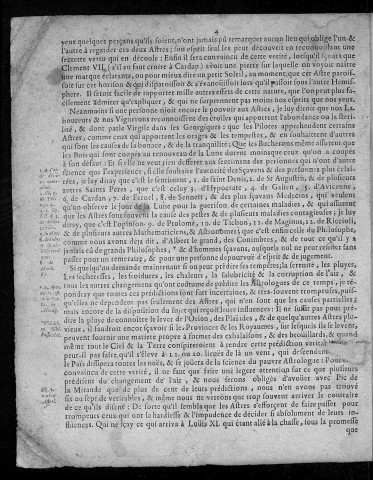 4
yeux quelques perçans qu'ils soient, n'ont jamais pû remarquer aucun lien qui oblige l'un &
l'autre à regarder ces deux Astres ; son esprit seul les peut découvrir en reconnoissant une
secrette vertu qui en découle : Enfin il sera convaincu de cette verité, lorsqu'il sçaura que
Clement VII. (s'il en faut croire à Cardan) avoit une pierre sur laquelle on voyoit naître
une marque éclatante, ou pour mieux dire un petit Soleil, au moment que cet Astre parois-
soit sur cet horison, & qui disparoissoit & s'évanoüissoit lors qu'il passoit sous l'autre Hemis-
phere. Il seroit facile de rapporter mille autres effets de cette nature, que l'on peut plus fa-
cilement admirer qu'expliquer, & qui ne surprennent pas moins nos esprits que nos yeux.
Neanmoins si une personne doit reconnoître le pouvoir aux Astres, je luy diray que nos La-
boureurs & nos Vignerons reconnoissent des étoiles qui apportent l'abondance ou la steri-
lité, & dont parle Virgile dans ses Georgiques : que les Pilotes apprehendent certains
Astres, comme ceux qui apportent les orages & les tempestes, & en souhaittent d'autres
qui sont les causes de la bonace, & de la tranquilité : Que les Bucherons même assurent que
les Bois qui sont coupez au renouveau de la Lune durent moins que ceux qu'on a coupez
à son défaut : Et si elle ne veut rien deferer aux sentimens des personnes qui n'ont d'autre
science que l'experience, si elle souhaite l'autorité des Sçavans & des personnes plus éclai-
rées, je luy diray que c'est le sentiment 1. de saint Denis, 2. de St Augustin, & de plusieurs
autres Saints Peres, que c'est celuy 3. d'Hypocrate, 4. de Galien, 5. d'Avicenne,
6. de Cardan, 7. de Fernel, 8. de Sennert, & des plus sçavans Medecins, qui veulent
qu'on observe le jour de la Lune pour la guerison de certaines maladies, & qui assurent
que les Astres sont souvent la cause des pestes & de plusieurs maladies contagieuses ; je luy
diray, que c'est l'opinion 9. de Ptolomé, 10. de Tichon, 11. de Maginus, 12. de Riccioli,
& de plusieurs autres Mathematiciens, & Astronomes ; que c'est enfin celle du Philosophe,
comme nous avons déja dit, d'Albert le grand, des Conimbres, & de tout ce qu'il y a
jamais eû de grands Philosophes, & d'hommes sçavans, lesquels nul ne peut rejetter sans
passer pour un temeraire, & pour une personne dépourvuë d'esprit & de jugement.
Si quelqu'un demande maintenant si on peut prédire les tempestes, la serenité, les pluyes,
les secheresses, les froidures, les chaleurs, la salubrité & la corruption de l'air, &
tous les autres changemens qu'ont coûtume de prédire les Astrologues de ce temps, je ré-
pondray que toutes ces prédictions sont fort incertaines, & tres-souvent trompeuses, puis-
qu'elles ne dépendent pas seulement des Astres, qui n'en sont que les causes partielles ;
mais encore de la disposition du sujet qui reçoit leurs influences : Il ne suffit pas pour pré-
dire la pluye de connoître le lever de l'Orion, des Pleïades, & de quelques autres Astres plu-
vieux, il faudroit encor sçavoir si les Provinces & les Royaumes, sur lesquels ils se levent,
peuvent fournir une matiere propre à former des exhalaisons, & des broüillards, & quand
même tout le Ciel & la Terre conspireroient à rendre cette prédiction veritable,
peut-il pas faire, qu'il s'éleve à 12. ou 20. lieuës de là un vent, qui descendant
le Païs dissipera toutes les nuës, & se joüera de la science du pauvre Astrologue : Pour
convaincu de cette verité, il ne faut que faire une legere attention sur ce que plusieurs
prédisent du changement de l'air, & nous serons obligés d'avoüer avec Pic de
la Mirande que de plus de cent de leurs prédictions, nous n'en avons pas trouvé
six ou sept de veritables, & même nous ne verrons que trop souvent arriver le contraire
de ce qu'ils disent : De sorte qu'il semble que les Astres s'efforcent de faire passer pour
trompeurs ceux qui ont la hardiesse & l'impudence de décider si absolument de leurs in-
fluences. Qui ne sçay ce qui arriva à Loüis XI. qui étant allé à la chasse, sous la promesse
que